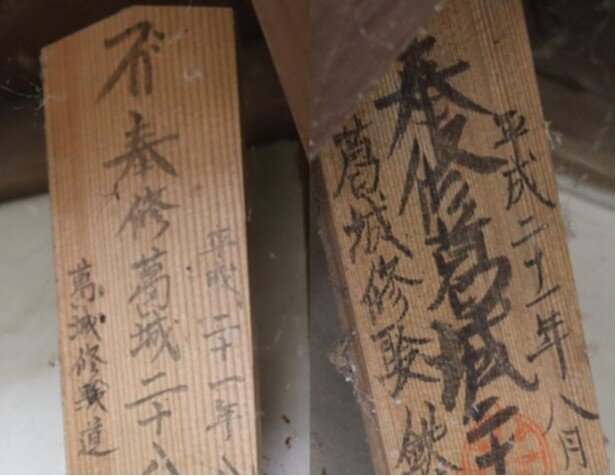 平成二十一年八
奉修葛城二十八
葛城修験道
平成二十一年八月
奉修葛城二十
葛城修験